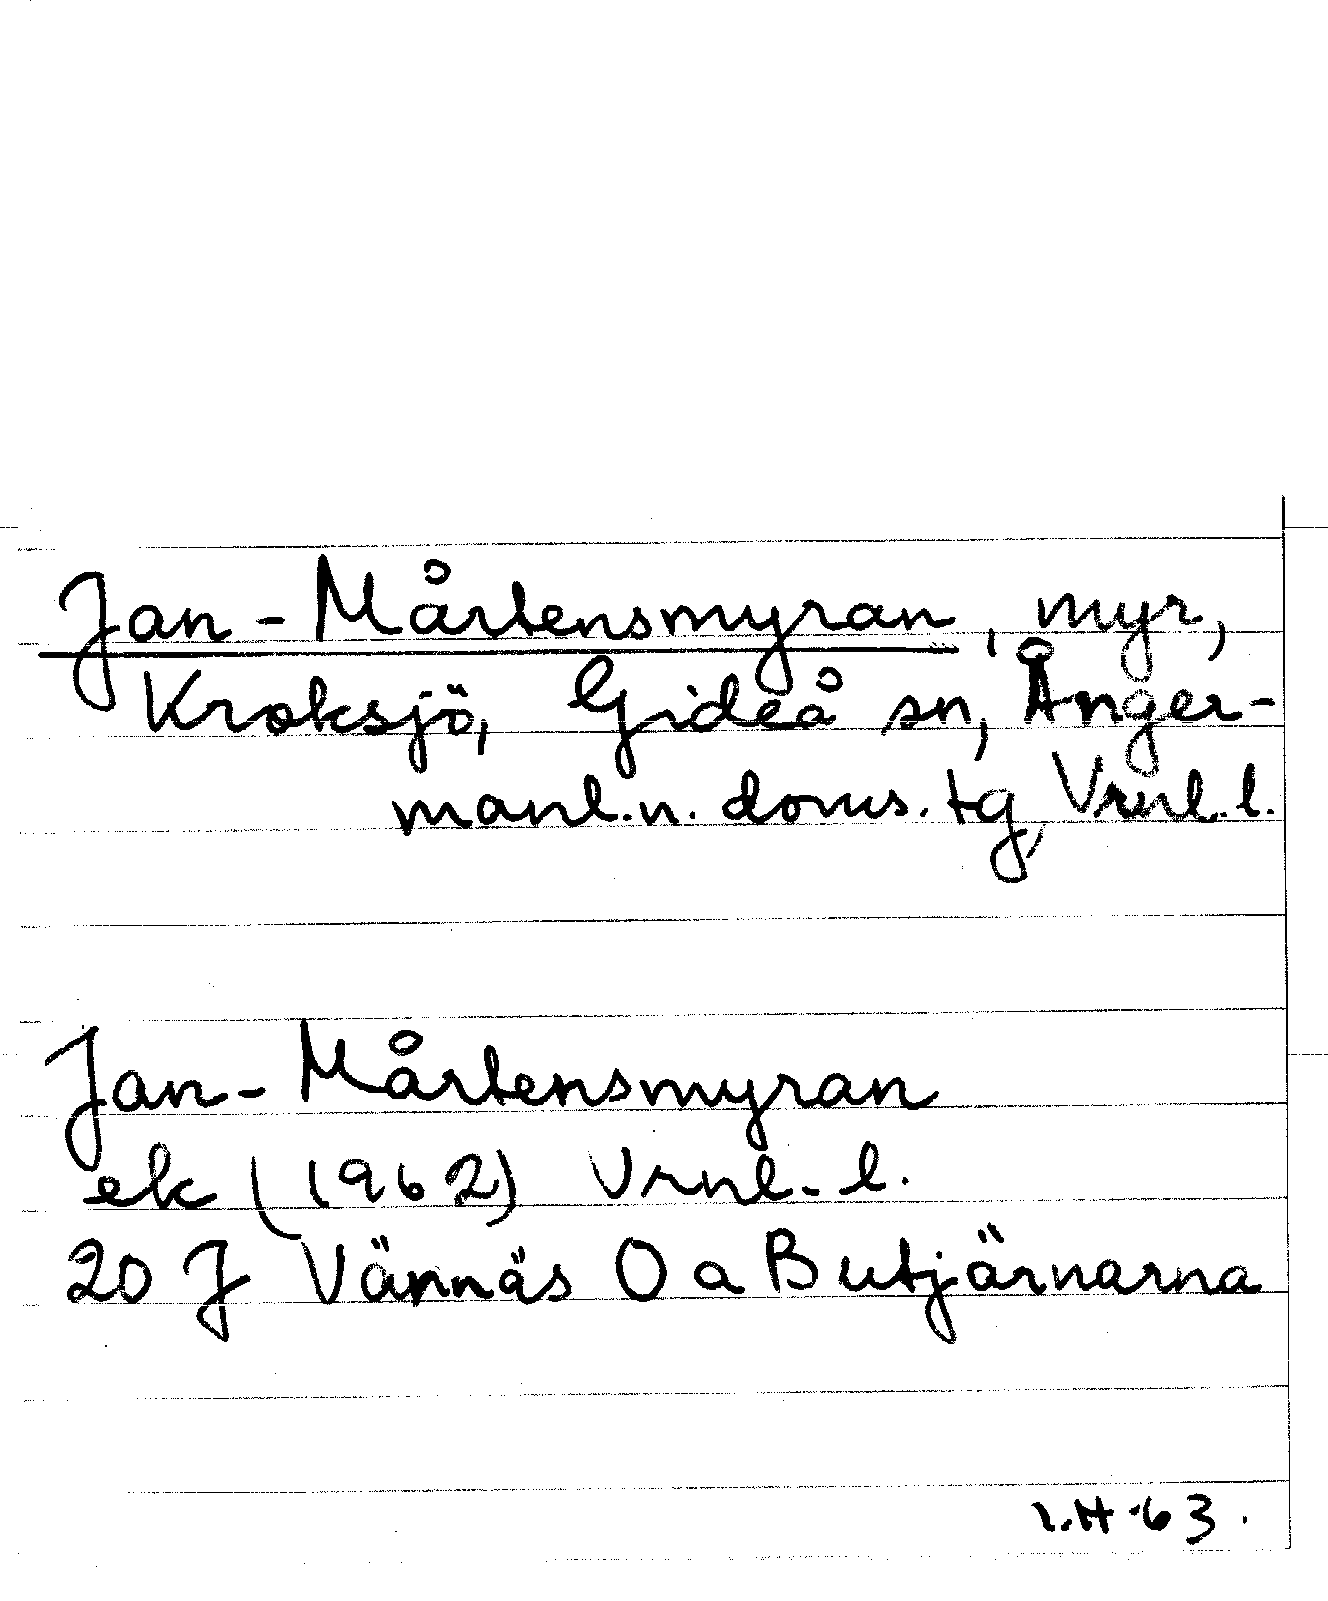 Jan-Mårtensmyran, myr,
Kroksjö, Gideå sn, Ånger-
manl.n. doms. tg, Vrnl. l.
Jan-Mårtensmyran
ek (1962) Vrnl. l.
20 J Vännäs O a Butjärnarna
I.H -63.